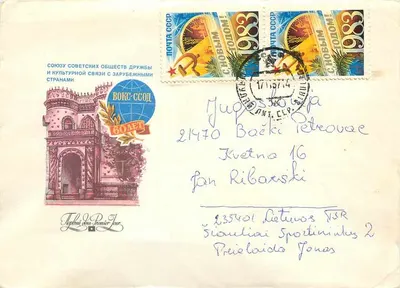 СОЮЗУ СОВЕТСКИХ ОБЩЕСТВ ДРУЖБЫ
И КУЛЬТУРНОЙ СВЯЗИ С ЗАРУБЕЖНЫМИ
СТРАНАМИ
ВОКС-ССОД
60 ЛЕТ
ПОЧТА СССР
С НОВЫМ
ГОДОМ!
1983
ПОЧТА СССР
С НОВЫМ
ГОДОМ!
1983
Jugoslavija
21470 Bački Petrovac
Kvetna 16
Jan Ribarski
235401 Lietuvos TSR
Šiauliai Sportininku 2
Prielaida Jonas